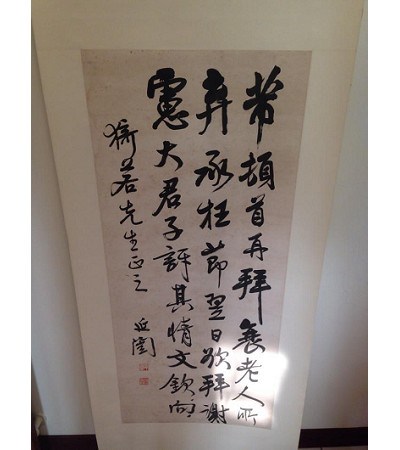 芾頓首再拜衰老人所
弃承枉節翌日欲拜謝
憲大君子訝其情文欽向
若先生正之
延闓